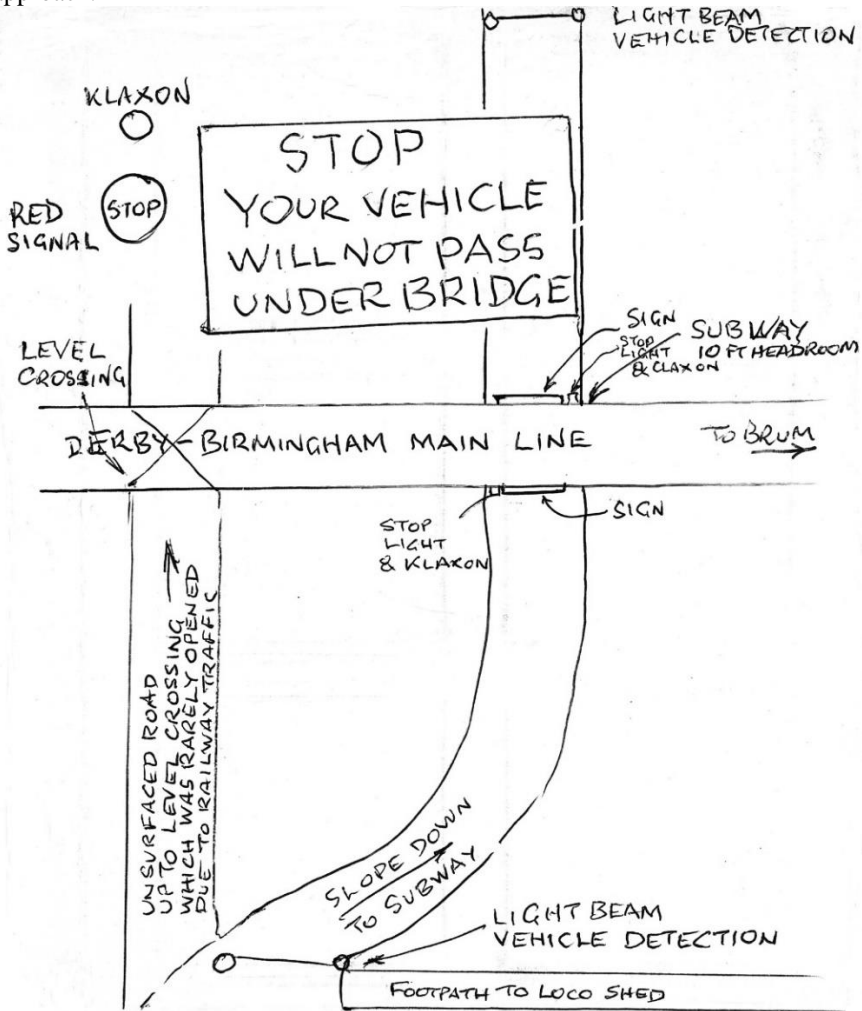 LIGHT BEAM
VEHICLE DETECTION
KLAXON
STOP
YOUR VEHICLE
WILL NOT PASS
UNDER BRIDGE
RED
SIGNAL
STOP
LEVEL
CROSSING
SIGN
STOP
LIGHT
& CLAXON
SUBWAY
10 FT HEADROOM
DERBY-BIRMINGHAM MAIN LINE
TO BRUM
STOP
LIGHT
& KLAXON
SIGN
UNSURFACED ROAD
UP TO LEVEL CROSSING
WHICH WAS RARELY OPENED
DUE TO RAILWAY TRAFFIC
SLOPE DOWN
TO SUBWAY
LIGHT BEAM
VEHICLE DETECTION
FOOTPATH TO LOCO SHED